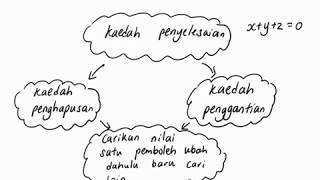 kaedah penyelesaian
x+y+z=0
kaedah
penghapusan
kaedah
penggantian
Carikan nilai
satu pemboleh ubah
dahulu baru cari
lain